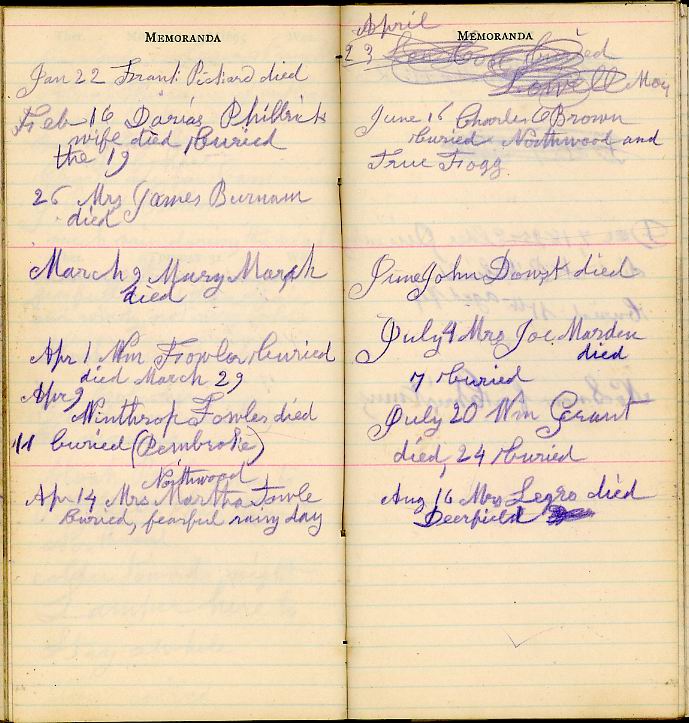 MEMORANDA
Jan 22 Frank Pickard died
Feb 16 Darias Philbrick
wife died buried
the 19
26 Mrs James Burnam
died
March 2 Mary Marsh
died
Apr 1 Wm Fowler buried
died March 29
Apr 9
Winthrop Fowles died
11 buried (Pembroke)
Northwood
Apr 14 Mrs Martha Fowle
buried, fearful rainy day
April
MEMORANDA
23
Lowell May
June 16 Charles C Brown
buried Northwood and
True Fogg
June John Dowst died
July 4 Mrs Joe Marden
died
7 buried
July 20 Wm Grant
died, 24 buried
Aug 16 Mrs Legro died
Deerfield